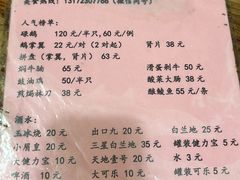 美食热线：13172307788（微信同号）
人气榜单：
碌鹅 120 元/半只,60 元/例
鹅掌翼 22 元/对（2 对起） 肾片 38 元
拼盘（掌翼）63 元
焖牛腩 65 元 滑蛋剥牛 50 元
豉油鸡 50/半只 酸菜大肠 38 元
煎焗秣刀 38 元 酿鲮鱼 55 元/条
酒水：
玉冰烧 20 元 出口九 20 元 白兰地 25 元
小眉直 20 元 三星白兰地 35 元 罐装健力宝 5 元
大健力宝 10 元 天地壹号 20 元 水 3 元
啤酒 10 元 大可乐 10 元 罐装可乐 5 元